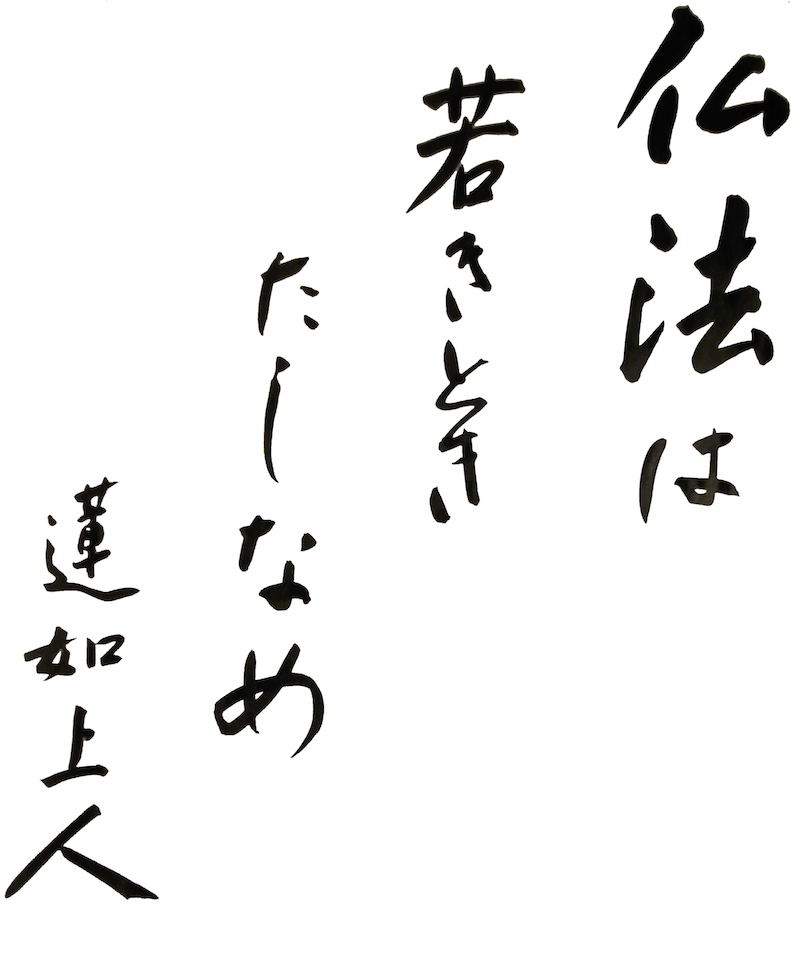 仏法は
若きとき
たしなめ
蓮如上人